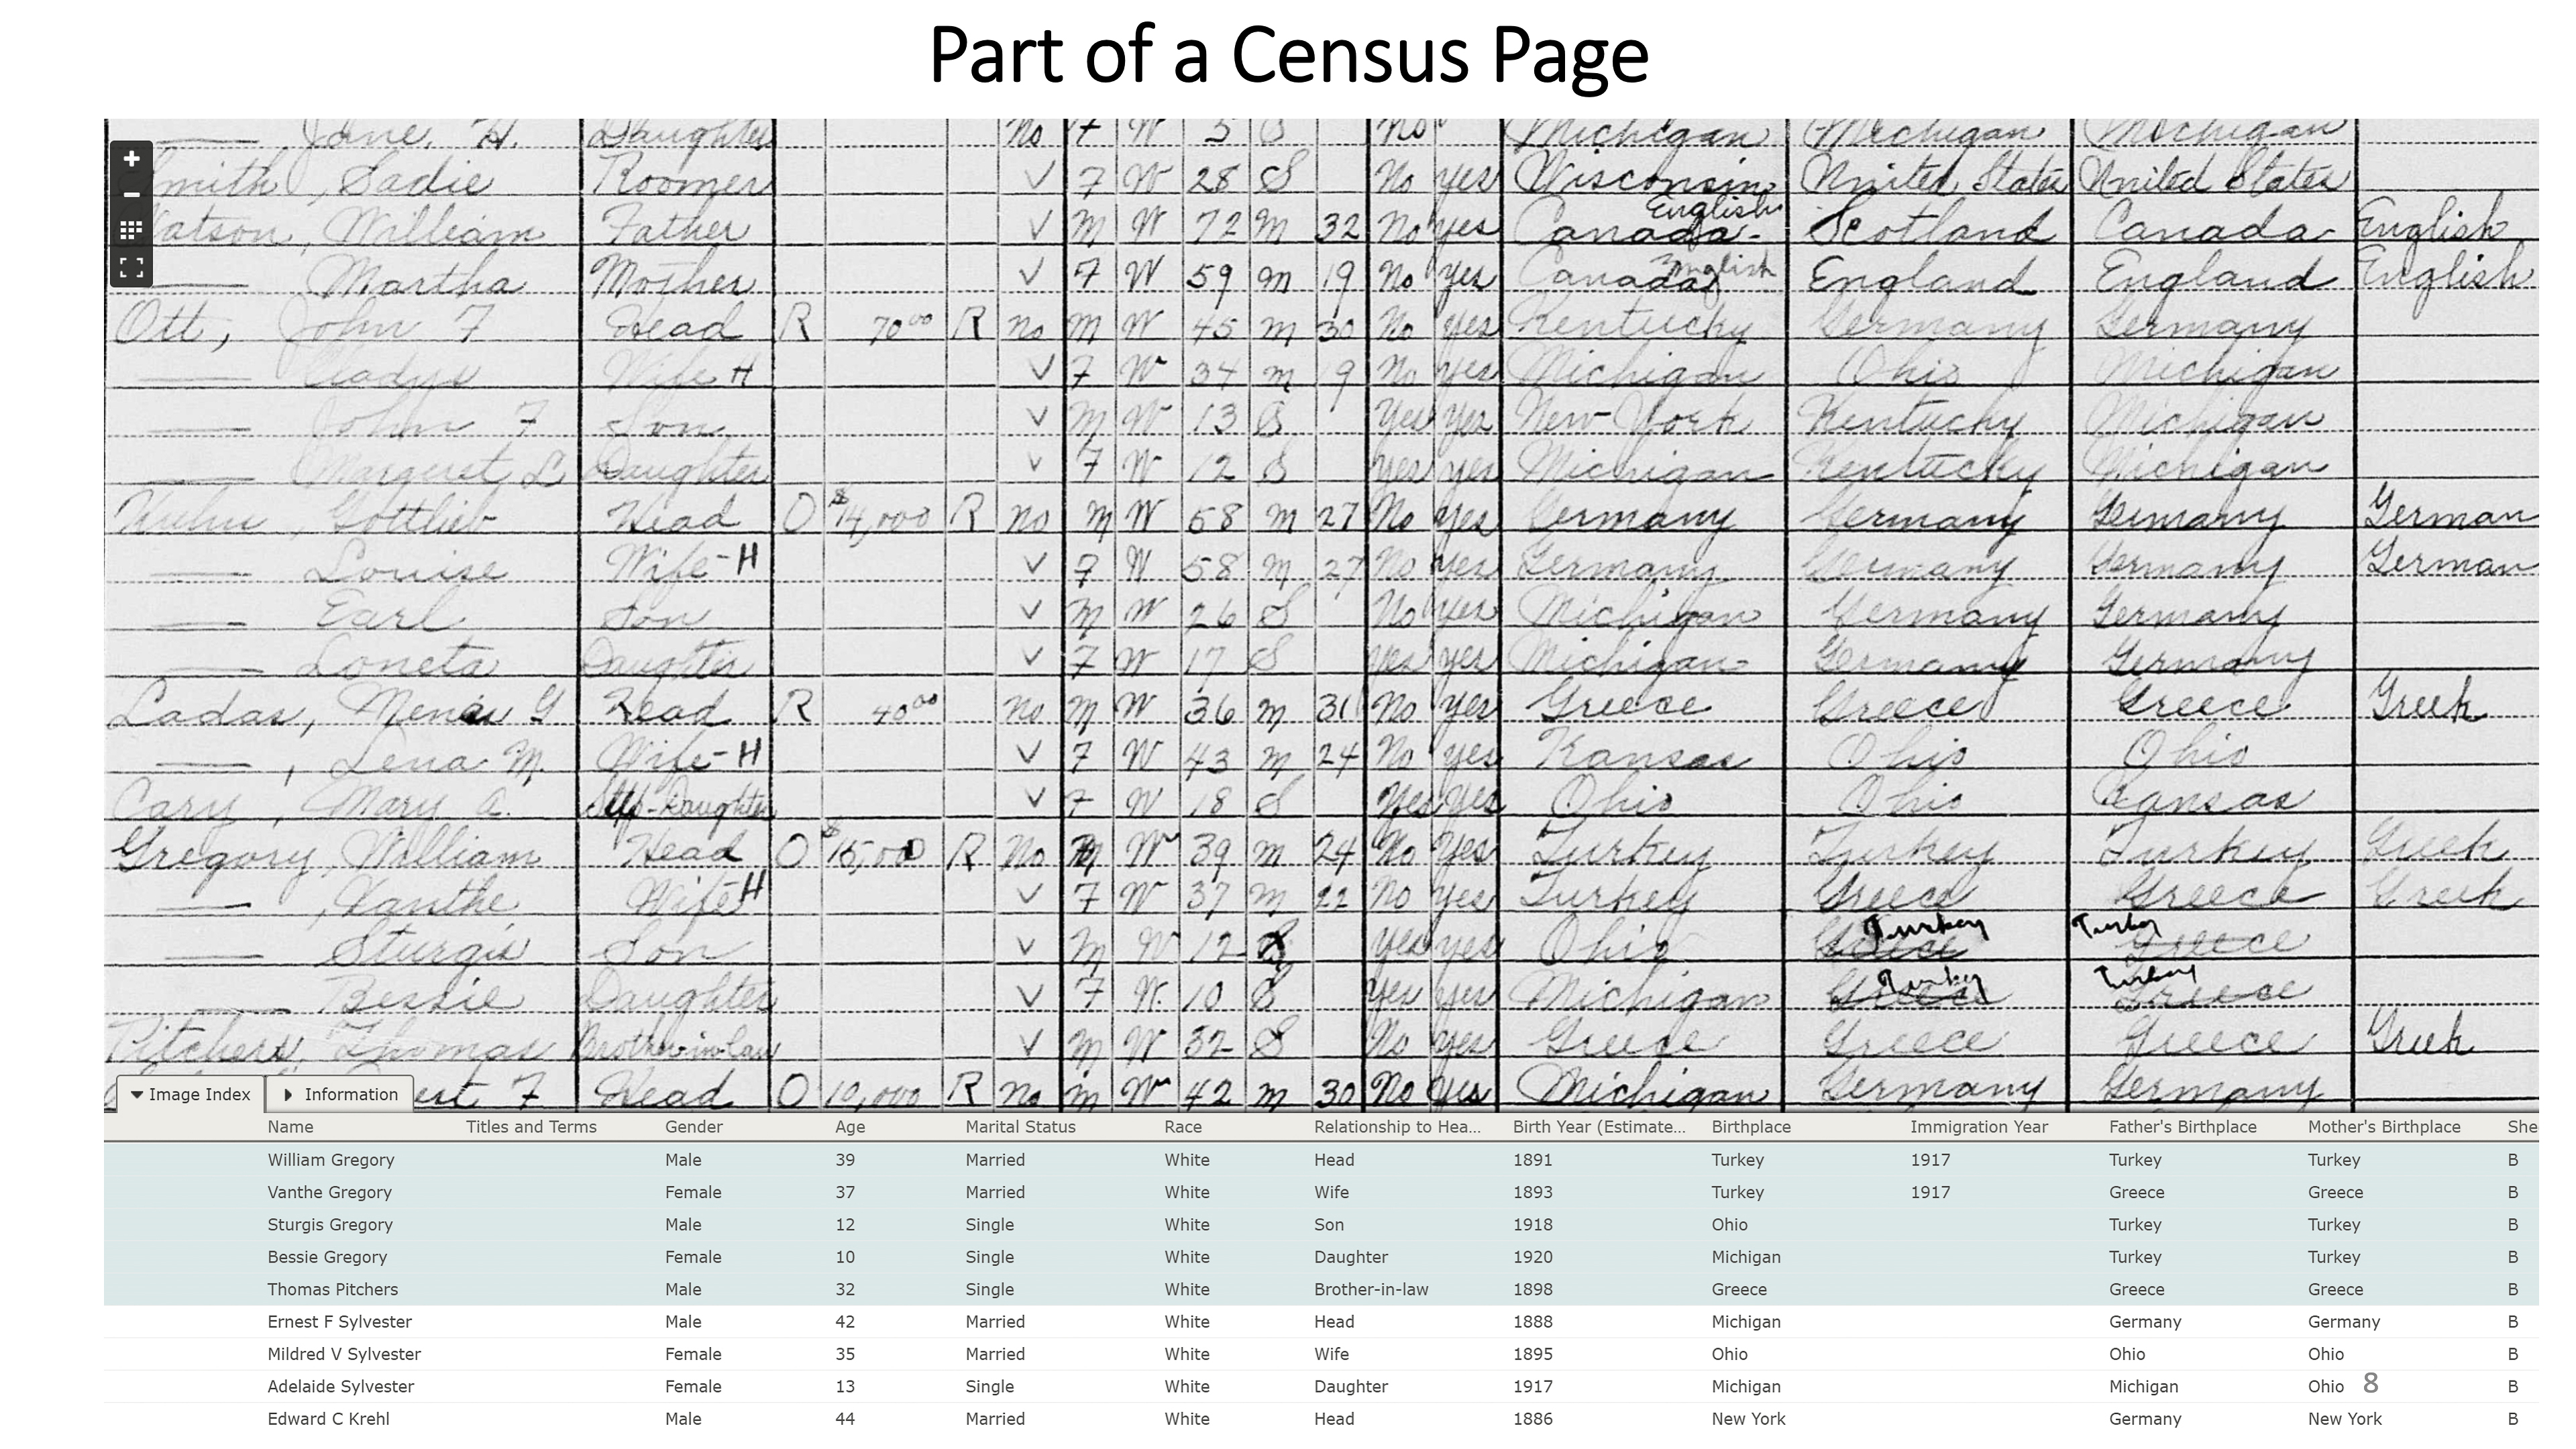 Part of a Census Page
Jane. H. Daughter No F W 5 S No Michigan Michigan Michigan
Smith, Sadie Roomer ✓ F W 28 S No Yes Wisconsin United States United States
Watson, William Father ✓ M W 72 M 32 No Yes Canada-English Scotland Canada- English
Martha Mother ✓ F W 59 M 19 No Yes Canada English England England English
Ott, John F Head R 70⁰⁰ R No M W 45 M 30 No Yes Kentucky Germany Germany
Gladys Wife H ✓ F W 34 M 19 No Yes Michigan Ohio Michigan
John F Son ✓ M W 13 S Yes Yes New York Kentucky Michigan
Margaret L Daughter ✓ F W 12 S Yes Yes Michigan Kentucky Michigan
Gottlieb Head O $14,000 R No M W 58 M 27 No Yes Germany Germany Germany German
Louise Wife-H ✓ F W 58 M 27 No Yes Germany Germany Germany German
Earl Son ✓ M W 26 S No Yes Michigan Germany Germany
Loneta Daughter ✓ F W 17 S Yes Yes Michigan Germany Germany
Ladas, G Head R 40⁰⁰ No M W 36 M 31 No Yes Greece Greece Greece Greek
, Lena M. Wife-H ✓ F W 43 M 24 No Yes Kansas Ohio Ohio
Cary, Mary A. Step-Daughter ✓ F W 18 S Yes Yes Ohio Ohio Kansas
Gregory, William Head O $15,000 R No M W 39 M 24 No Yes Turkey Turkey Turkey Greek
, Xanthe Wife-H ✓ F W 37 M 22 No Yes Turkey Greece Greece Greek
Sturgis Son ✓ M W 12 S Yes Yes Ohio Greece Turkey Turkey Greece
Bessie Daughter ✓ F W. 10 S Yes Yes Michigan Greece Turkey Turkey Greece
Pitchers, Thomas Brother-in-law ✓ M W 32 S No Yes Greece Greece Greece Greek
est F Head O 10,000 R No M W 42 M 30 No Yes Michigan Germany Germany
Image Index Information
Name Titles and Terms Gender Age Marital Status Race Relationship to Hea... Birth Year (Estimate... Birthplace Immigration Year Father's Birthplace Mother's Birthplace She
William Gregory Male 39 Married White Head 1891 Turkey 1917 Turkey Turkey B
Vanthe Gregory Female 37 Married White Wife 1893 Turkey 1917 Greece Greece B
Sturgis Gregory Male 12 Single White Son 1918 Ohio Turkey Turkey B
Bessie Gregory Female 10 Single White Daughter 1920 Michigan Turkey Turkey B
Thomas Pitchers Male 32 Single White Brother-in-law 1898 Greece Greece Greece B
Ernest F Sylvester Male 42 Married White Head 1888 Michigan Germany Germany B
Mildred V Sylvester Female 35 Married White Wife 1895 Ohio Ohio Ohio B
Adelaide Sylvester Female 13 Single White Daughter 1917 Michigan Michigan Ohio B
8
Edward C Krehl Male 44 Married White Head 1886 New York Germany New York B